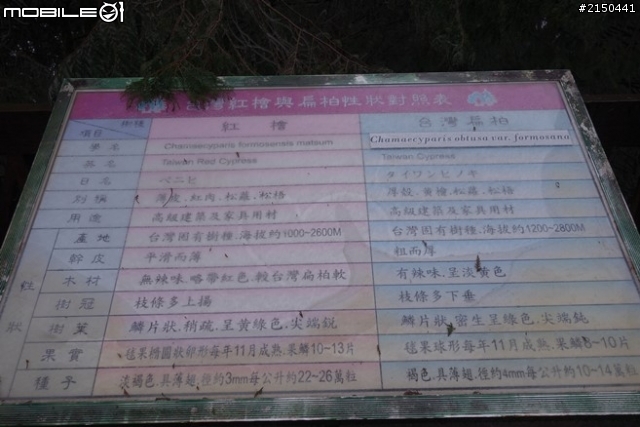 MOBILE01
#2150441
台灣紅檜與扁柏性狀對照表
樹種 項目 紅檜 台灣扁柏
學名 Chamaecyparis formosensis matsum Chamaecyparis obtusa var. formosana
英名 Taiwan Red Cypress Taiwan Cypress
日名 ベニヒ タイワンヒノキ
別稱 薄殼.紅肉.松蘿.松梧 厚殼.黃檜.松蘿.松梧
用途 高級建築及家具用材 高級建築及家具用材
性狀
產地 台灣固有樹種.海拔約1000~2600M 台灣固有樹種.海拔約1200~2800M
幹皮 平滑而薄 粗而厚
木材 無辣味.略帶紅色.較台灣扁柏軟 有辣味.呈淡黃色
樹冠 枝條多上揚 枝條多下垂
樹葉 鱗片狀.稍疏.呈黃綠色.尖端銳 鱗片狀.密生呈綠色.尖端鈍
果實 毬果橢圓狀卵形每年11月成熟.果鱗10~13片 毬果球形每年11月成熟.果鱗8~10片
種子 淡褐色.具薄翅.徑約3mm每公升約22~26萬粒 褐色.具薄翅.徑約4mm每公升約10~14萬粒